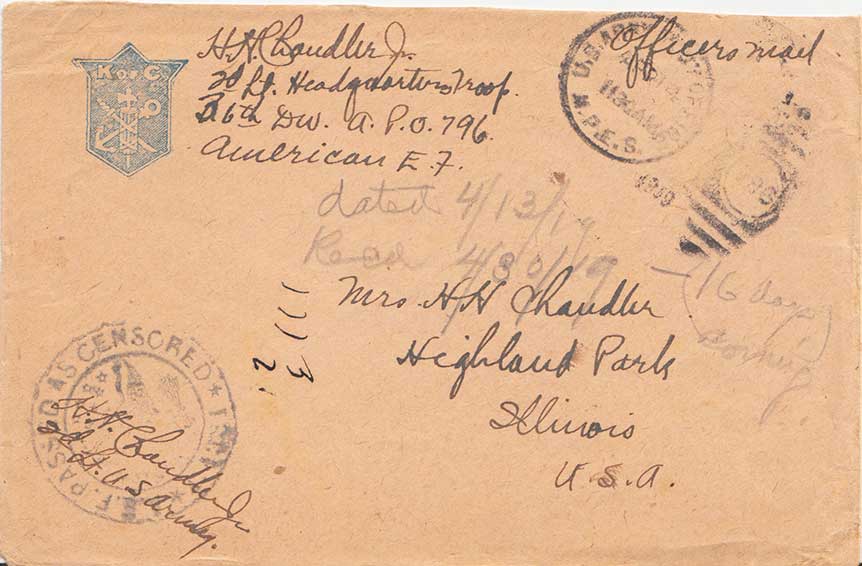 K of C
H. H. Chandler Jr.
2d Lt. Headquarters Troop.
6th Div. A. P. O. 796.
American E. F.
Officers mail
U.S. ARMY
M.P.E.S.
dated 4/13/19
Recd 4/30/19 – (16 days
coming)
Mrs H H Chandler
Highland Park
Illinois
U.S.A.
1113
2
PASSED AS CENSORED
H. H. Chandler Jr
2d Lt. U S Army.